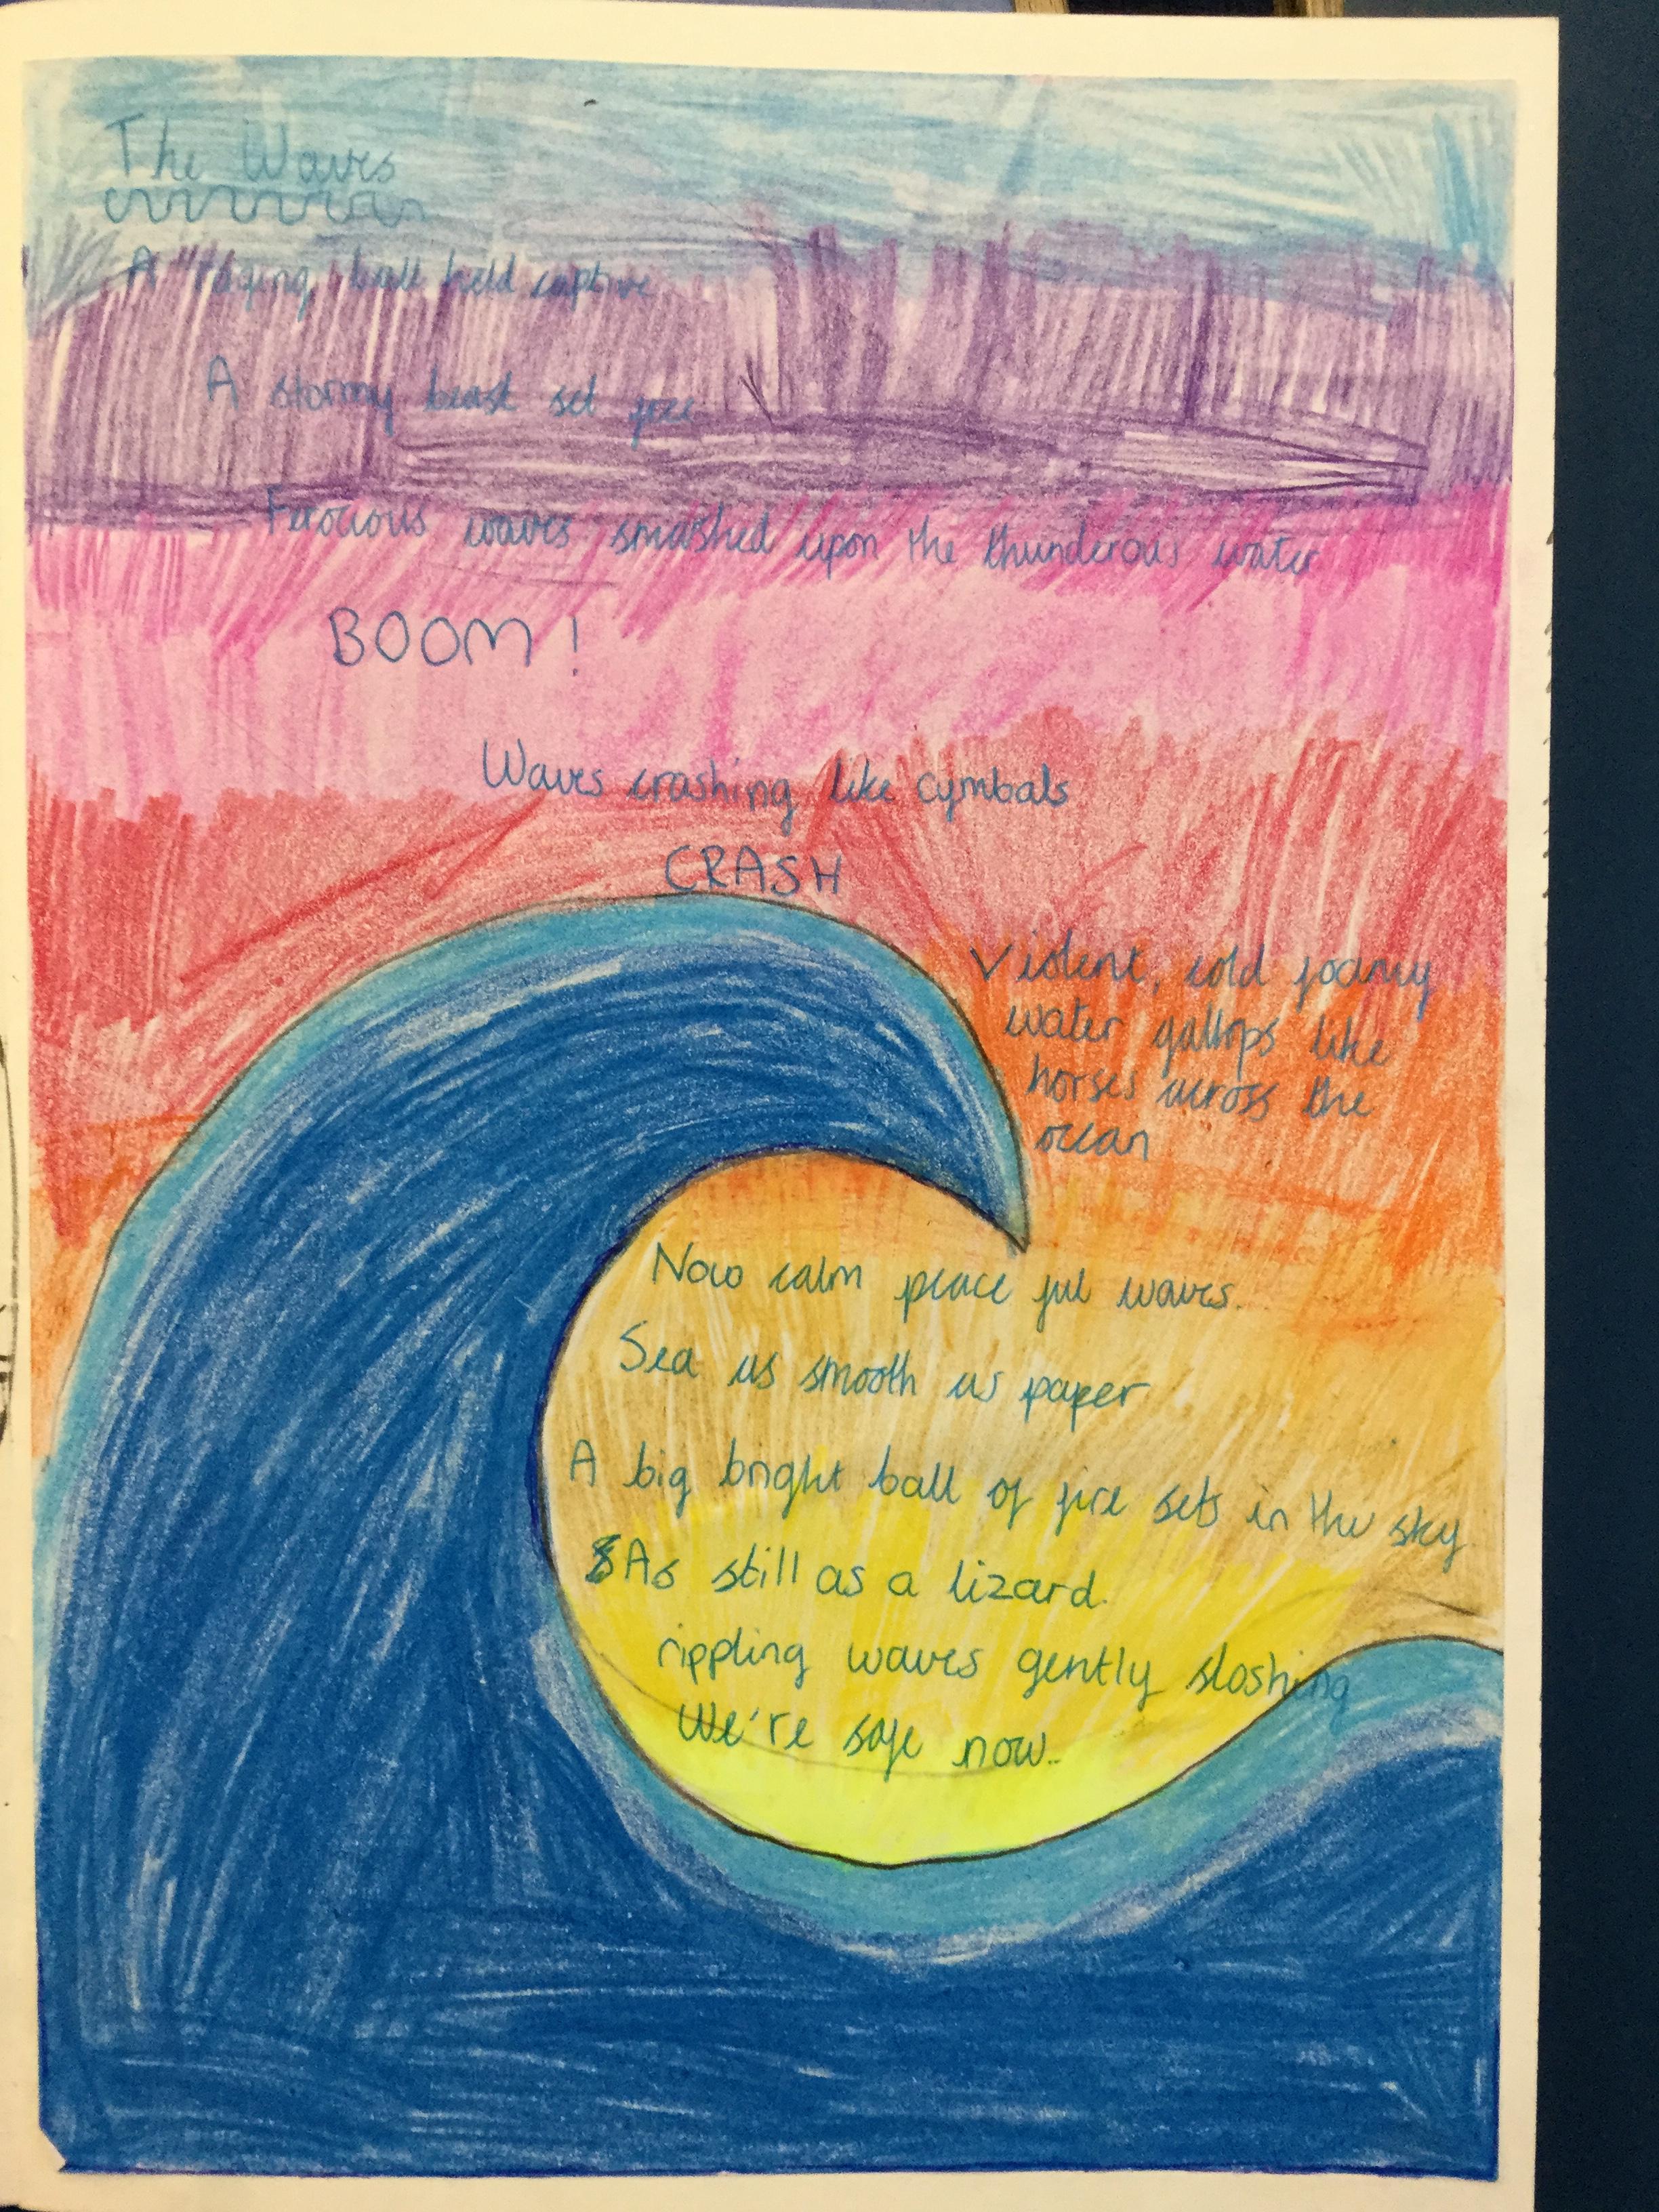 The Waves
A raging ball held captive
A stormy beast set free
Ferocious waves smashed upon the thunderous water
BOOM!
Waves crashing like cymbals
CRASH
Violent, cold foamey
water gallops like
horses across the
ocean
Now calm peace ful waves.
Sea as smooth as paper
A big bright ball of fire sets in the sky
As still as a lizard.
rippling waves gently sloshing
We're safe now..